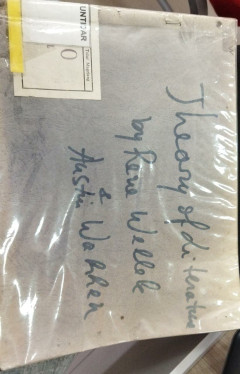 UNTAR
Theory of Literature
by Rene Wellek
&
Austin Warren